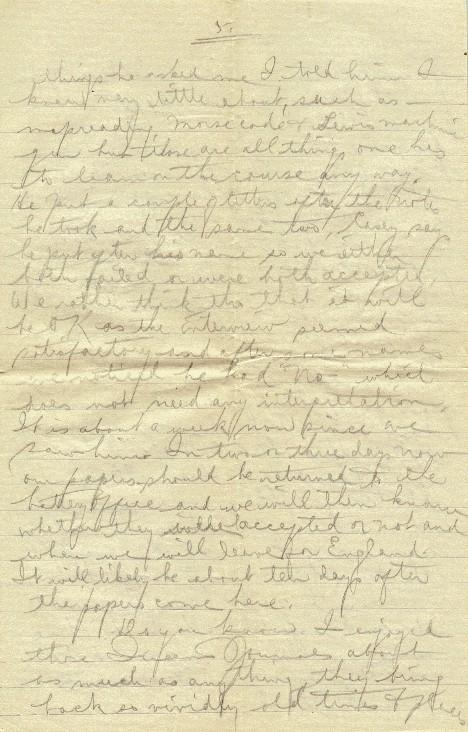 5.
things he asked me I told him I
know very little about, such as —
mapreading, Morse code & Lewis machine
gun but those are all things one has
to learn on the course any way.
He put a couple letters after the note
he took and the same two, Casey say
he put after his name so we either
both failed or were both accepted,
We rather think tho that it will
be O.K. as the interview seemed
satisfactory and after some names
we noticed he had "No" which
does not need any interpretation.
It is about a week now since we
saw him. In two or three days now
our papers should be returned to the
battery office and we will then know
whether they were accepted or not and
when we will leave for England.
It will likely be about ten days after
the papers come here.
Do you know I enjoyed
those Journals about
as much as anything, they bring
back so vividly old times & places